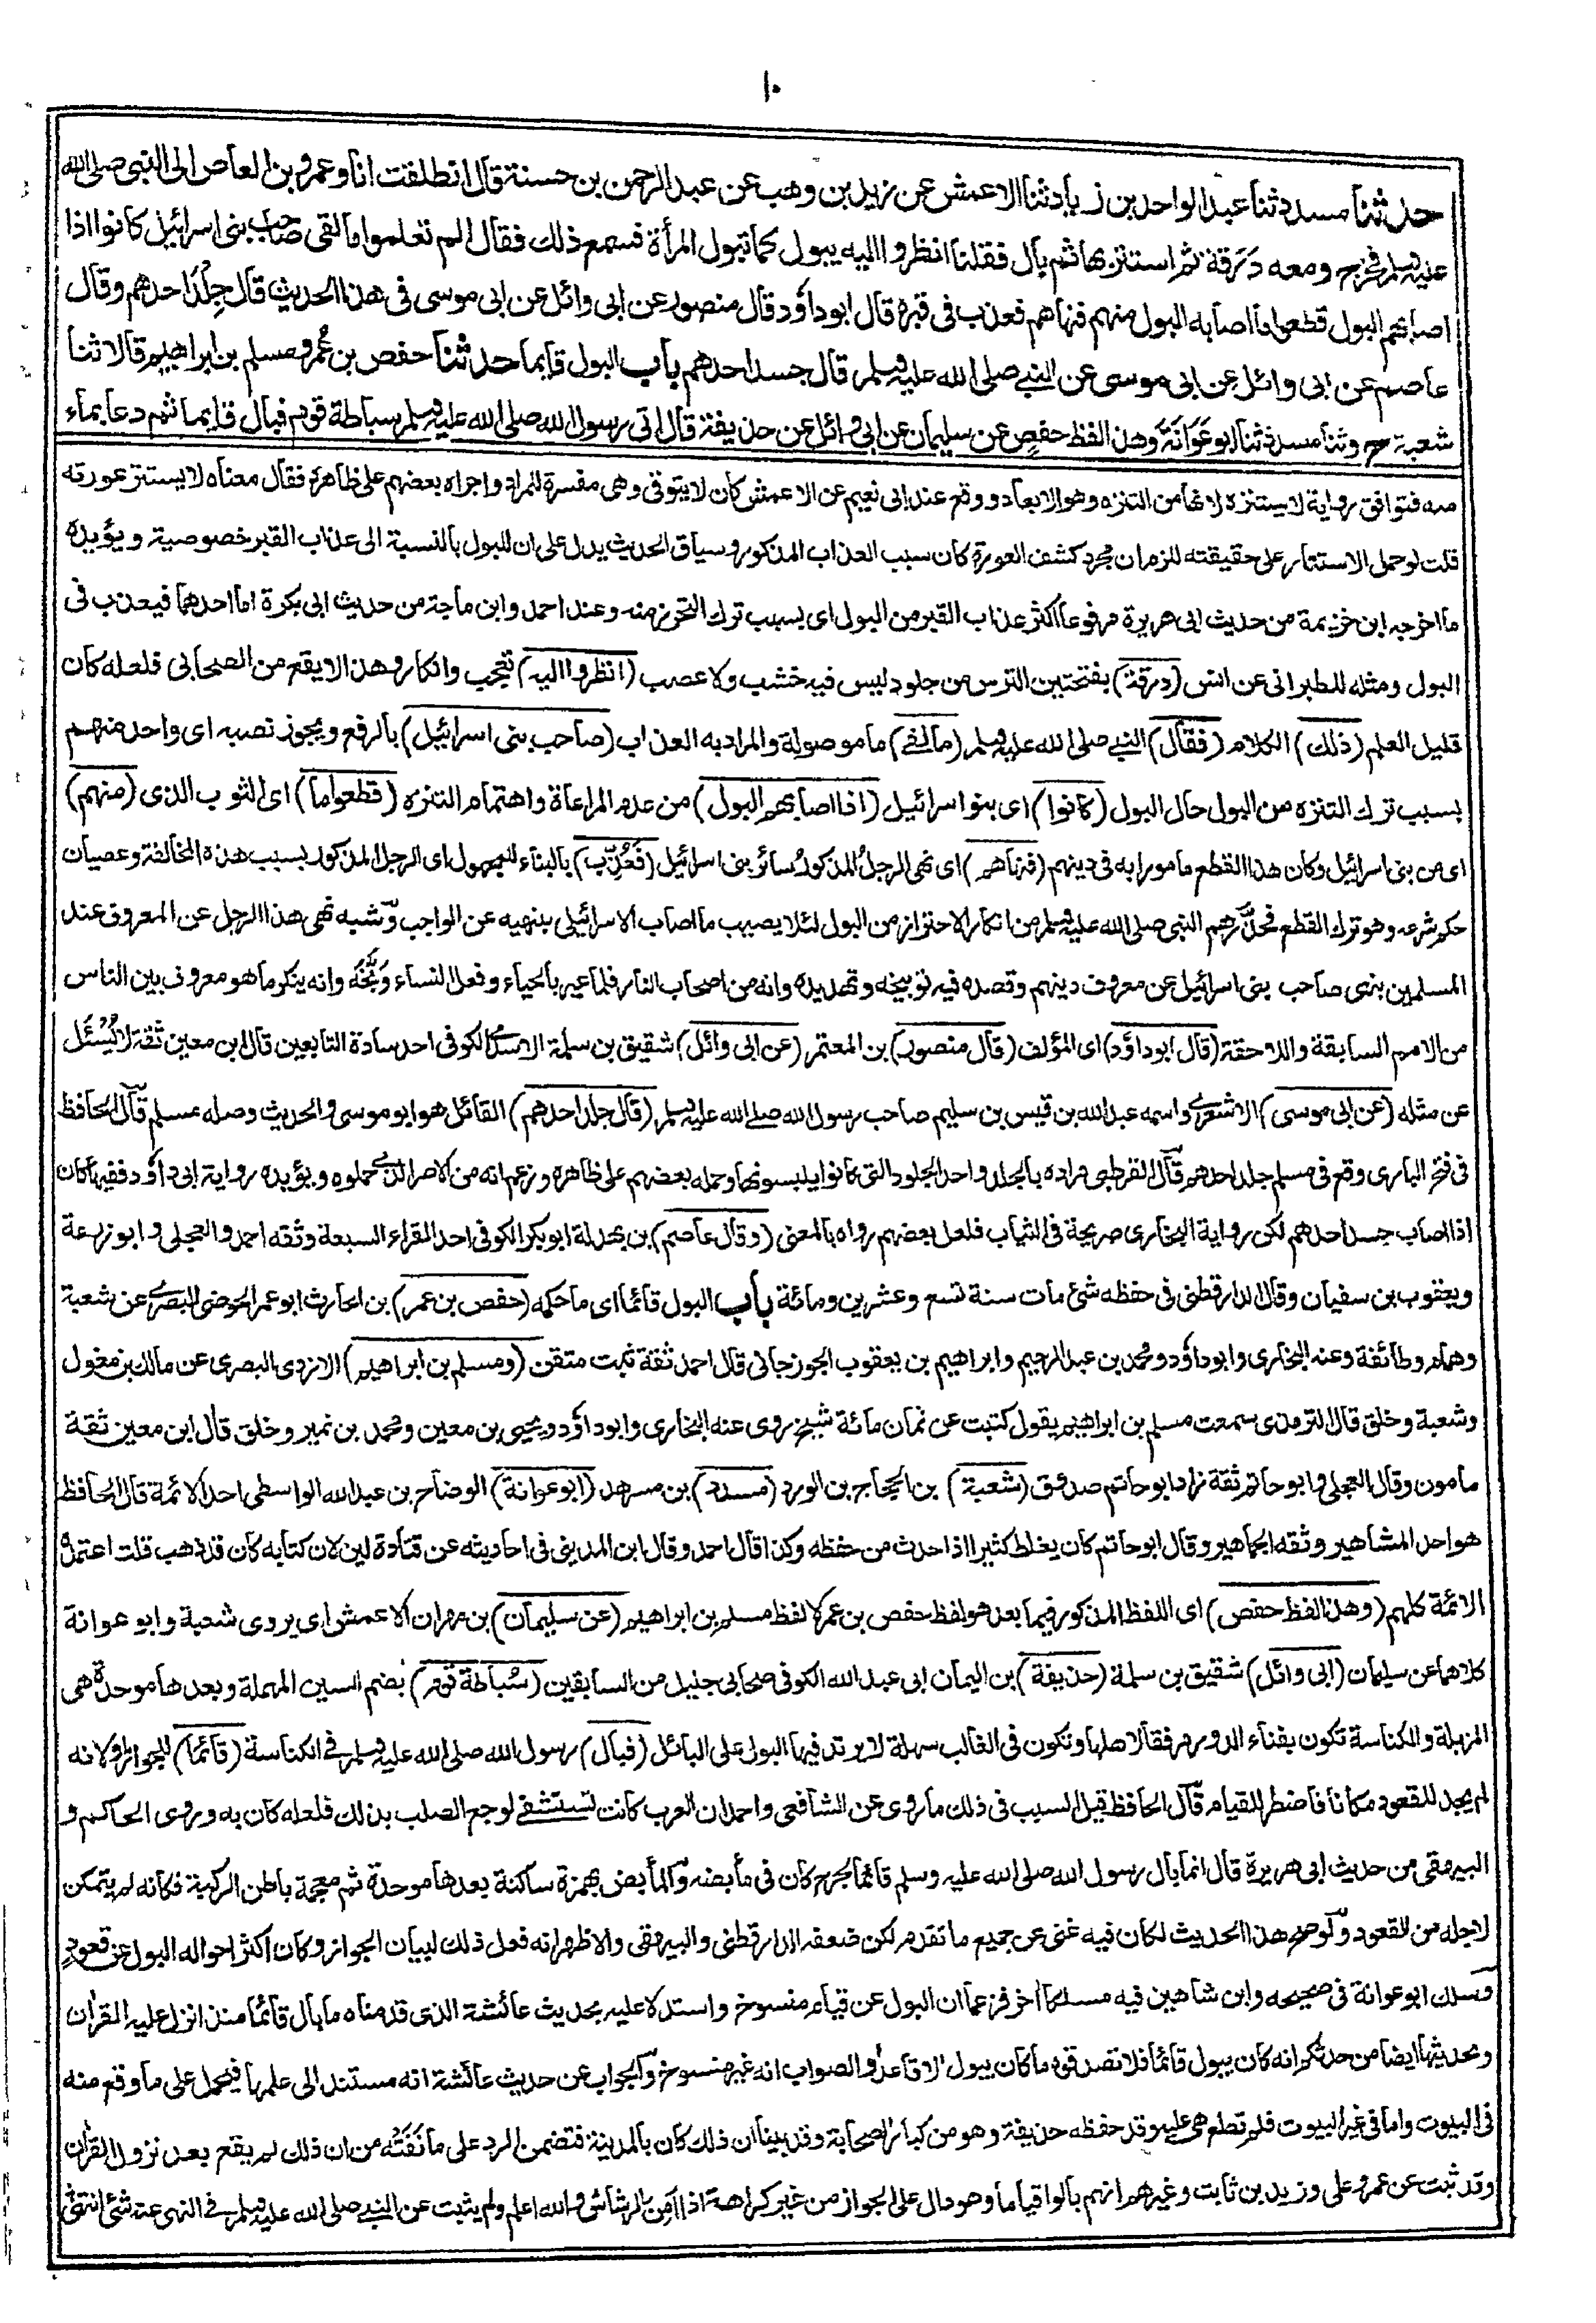 ١٠
حدثنا مسدد ثنا عبد الواحد بن زياد ثنا الاعمش عن زيد بن وهب عن عبد الرحمن بن حسنة قال انطلقت انا وعمرو بن العاص الى النبي صلى الله
عليه وسلم فخرج ومعه دَرَقة ثم استتر بها ثم بال فقلنا انظروا اليه يبول كما تبول المرأة فسمع ذلك فقال الم تعلموا ما لقى صاحب بنى اسرائيل كانوا اذا
اصابهم البول قطعوا ما اصابه البول منهم فنهاهم فعذب فى قبره قال ابوداؤد قال منصور عن ابى وائل عن ابى موسى فى هذا الحديث قال جِلْدَ احدهم وقال
عاصم عن ابى وائل عن ابى موسى عن النبى صلى الله عليه وسلم قال جسد احدهم باب البول قايما حدثنا حفص بن عُمر ومسلم بن ابراهيم قالا ثنا
شعبة ح وثنا مسدد ثنا ابو عَوَانَة وهذا لفظ حفصٍ عن سليمان عن ابى وائل عن حذيفة قال اتى رسول الله صلى الله عليه وسلم سباطة قوم فبال قايما ثم دعا بماء
منه فتوافق رواية لا يستنزه لانها من التنزه وهو الابعاد ووقع عند ابى نعيم عن الاعمش كان لا يتوقى وهى مفسرة للمراد واجراه بعضهم على ظاهره فقال معناه لا يستتر عورته
قلت لو حمل الاستتار على حقيقته للزم ان مجرد كشف العورة كان سبب العذاب المذكور وسياق الحديث يدل على ان للبول بالنسبة الى عذاب القبر خصوصية ويؤيده
ما اخرجه ابن خزيمة من حديث ابى هريرة مرفوعا اكثر عذاب القبر من البول اى بسبب ترك التحرز منه وعند احمد وابن ماجة من حديث ابى بكرة اما احدهما فيعذب فى
البول ومثله للطبرانى عن انس (درقة) بفتحتين الترس من جلود ليس فيه خشب ولا عصب (انظروا اليه) تعجب وانكار وهذا لا يقع من الصحابى فلعله كان
قليل العلم (ذلك) الكلام (فقال) النبى صلى الله عليه وسلم (ما لقى) ما موصولة والمراد به العذاب (صاحب بنى اسرائيل) بالرفع ويجوز نصبه اى واحد منهم
بسبب ترك التنزه من البول حال البول (كانوا) اى بنو اسرائيل (اذا اصابهم البول) من عدم المراعاة واهتمام التنزه (قطعوا ما) اى الثوب الذى (منهم)
اى من بنى اسرائيل وكان هذا القطع مامورا به فى دينهم (فنهاهم) اى نهى الرجلُ المذكورُ سائر بنى اسرائيل (فَعُذِّب) بالبناء للمجهول اى الرجل المذكور بسبب هذه المخالفة وعصيان
حكم شرعه وهو ترك القطع فحذَّرهم النبى صلى الله عليه وسلم من انكار الاحتراز من البول لئلا يصيبهم ما اصاب الاسرائيلى بنهيه عن الواجب وشبه نهى هذا الرجل عن المعروف عند
المسلمين بنهى صاحب بنى اسرائيل عن معروف دينهم وقصده فيه توبيخه وتهديده وانه من اصحاب النار فلما عير بالحياء وفعل النساء وَبَّخَه وانه ينكر ما هو معروف بين الناس
من الامم السابقة واللاحقة (قال ابوداؤد) اى المؤلف (قال منصور) بن المعتمر (عن ابى وائل) شقيق بن سلمة الاسدى الكوفى احد سادة التابعين قال ابن معين ثقة لا يُسْئَل
عن مثله (عن ابى موسى) الاشعرى واسمه عبد الله بن قيس بن سليم صاحب رسول الله صلى الله عليه وسلم (قال جلد احدهم) القائل هو ابو موسى والحديث وصله مسلم قال الحافظ
فى فتح البارى وقع فى مسلم جلد احدهم قال القرطبى مراده بالجلد واحد الجلود التى كانوا يلبسونها وحمله بعضهم على ظاهره وزعم انه من الاصر الذى حملوه ويؤيده رواية ابى داؤد ففيها كان
اذا اصاب جسد احدهم لكن رواية البخارى صريحة فى الثياب فلعل بعضهم رواه بالمعنى (وقال عاصم) بن بهدلة ابوبكر الكوفى احد القراء السبعة وثقه احمد والعجلى وابو زرعة
ويعقوب بن سفيان وقال الدارقطنى فى حفظه شئ مات سنة تسع وعشرين ومائة باب البول قائما اى ما حكمه (حفص بن عمر) بن الحارث ابو عمر الحوضى البصرى عن شعبة
وهمام وطائفة وعنه البخارى وابوداؤد ومحمد بن عبد الرحيم وابراهيم بن يعقوب الجوزجانى قال احمد ثقة ثبت متقن (ومسلم بن ابراهيم) الازدى البصرى عن مالك بن مغول
وشعبة وخلق قال الترمذى سمعت مسلم بن ابراهيم يقول كتبت عن ثمان مائة شيخ روى عنه البخارى وابوداؤد ويحيى بن معين ومحمد بن نمير وخلق قال ابن معين ثقة
مامون وقال العجلى وابو حاتم ثقة زاد ابو حاتم صدوق (شعبة) بن الحجاج بن الورد (مسدد) بن مسرهد (ابو عوانة) الوضاح بن عبد الله الواسطى احد الائمة قال الحافظ
هو احد المشاهير وثقه الجماهير وقال ابو حاتم كان يغلط كثيرا اذا حدث من حفظه وكذا قال احمد وقال ابن المدينى فى احاديثه عن قتادة لين لان كتابه كان قد ذهب قلت اعتمده
الائمة كلهم (وهذا لفظ حفص) اى اللفظ المذكور فيما بعد هو لفظ حفص بن عمر لا لفظ مسلم بن ابراهيم (عن سليمان) بن مهران الاعمش اى يروى شعبة وابو عوانة
كلاهما عن سليمان (ابى وائل) شقيق بن سلمة (حذيفة) بن اليمان ابى عبد الله الكوفى صحابى جليل من السابقين (سُبَاطة قوم) بضم السين المهملة وبعدها موحدة هى
المزبلة والكناسة تكون بفناء الدور مرفقا لاهلها وتكون فى الغالب سهلة لا يرتد فيها البول على البائل (فبال) رسول الله صلى الله عليه وسلم فى الكناسة (قائما) للجواز او لانه
لم يجد للقعود مكانا فاضطر للقيام قال الحافظ قيل السبب فى ذلك ما روى عن الشافعى واحمد ان العرب كانت تستشفى لوجع الصلب بذلك فلعله كان به وروى الحاكم و
البيهقى من حديث ابى هريرة قال انما بال رسول الله صلى الله عليه وسلم قائما لجرح كان فى مأبضه والمأبض بهمزة ساكنة بعدها موحدة ثم معجمة باطن الركبة فكانه لم يتمكن
لاجله من القعود ولو صح هذا الحديث لكان فيه غنى عن جميع ما تقدم لكن ضعفه الدارقطنى والبيهقى والاظهر انه فعل ذلك لبيان الجواز وكان اكثر احواله البول عن قعود
وسلك ابو عوانة فى صحيحه وابن شاهين فيه مسلكا آخر فزعما ان البول عن قيام منسوخ واستدلا عليه بحديث عائشة الذى قدمناه ما بال قائما منذ انزل عليه القرآن
وبحديثها ايضا من حدثكم انه كان يبول قائما فلا تصدقوه ما كان يبول الا قاعدا والصواب انه غير منسوخ والجواب عن حديث عائشة انه مستند الى علمها فيحمل على ما وقع منه
فى البيوت واما فى غير البيوت فلم تطلع هى عليه وقد حفظه حذيفة وهو من كبار الصحابة وقد بينا ان ذلك كان بالمدينة فتضمن الرد على ما نَفَتْه من ان ذلك لم يقع بعد نزول القرآن
وقد ثبت عن عمر وعلى وزيد بن ثابت وغيرهم انهم بالوا قياما وهو دال على الجواز من غير كراهة اذا امن الرشاش والله اعلم ولم يثبت عن النبى صلى الله عليه وسلم فى النهى عنه شئ انتهى